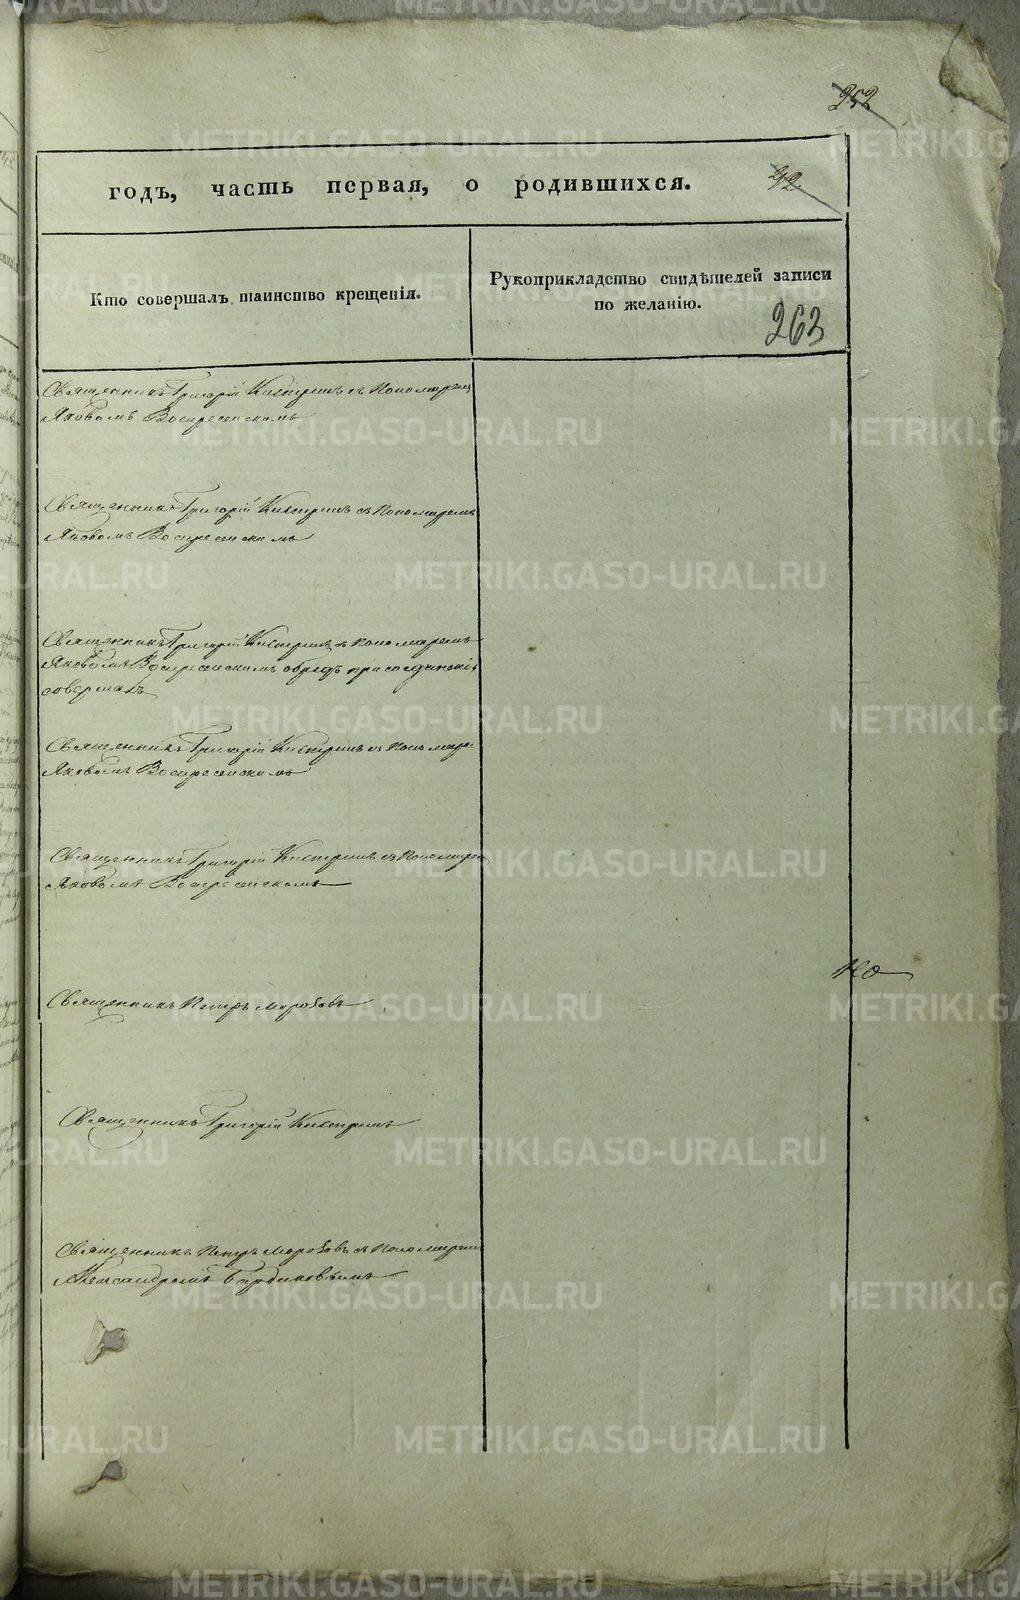 252
годъ, часть первая, о родившихся.
42.
Кто совершалъ таинство крещенія.
Рукоприкладство свидѣтелей записи
по желанію.
263
Священникъ Григорій с Пономарем
Яковомъ Воскресенскимъ
Священникъ Григорій съ Пономаремъ
Яковомъ Воскресенскимъ
Священникъ Григорій съ пономаремъ
Яковомъ Воскресенскимъ обрядъ присоединенія
совершалъ
Священникъ Григорій съ Пономаре
Яковомъ Воскресенскимъ
Священникъ Григорій съ Пономарем
Яковомъ Воскресенскимъ
Священникъ Петръ
Священникъ Григорій
Священникъ Петръ съ Пономарем
Александромъ
METRIKI.GASO-URAL.RU